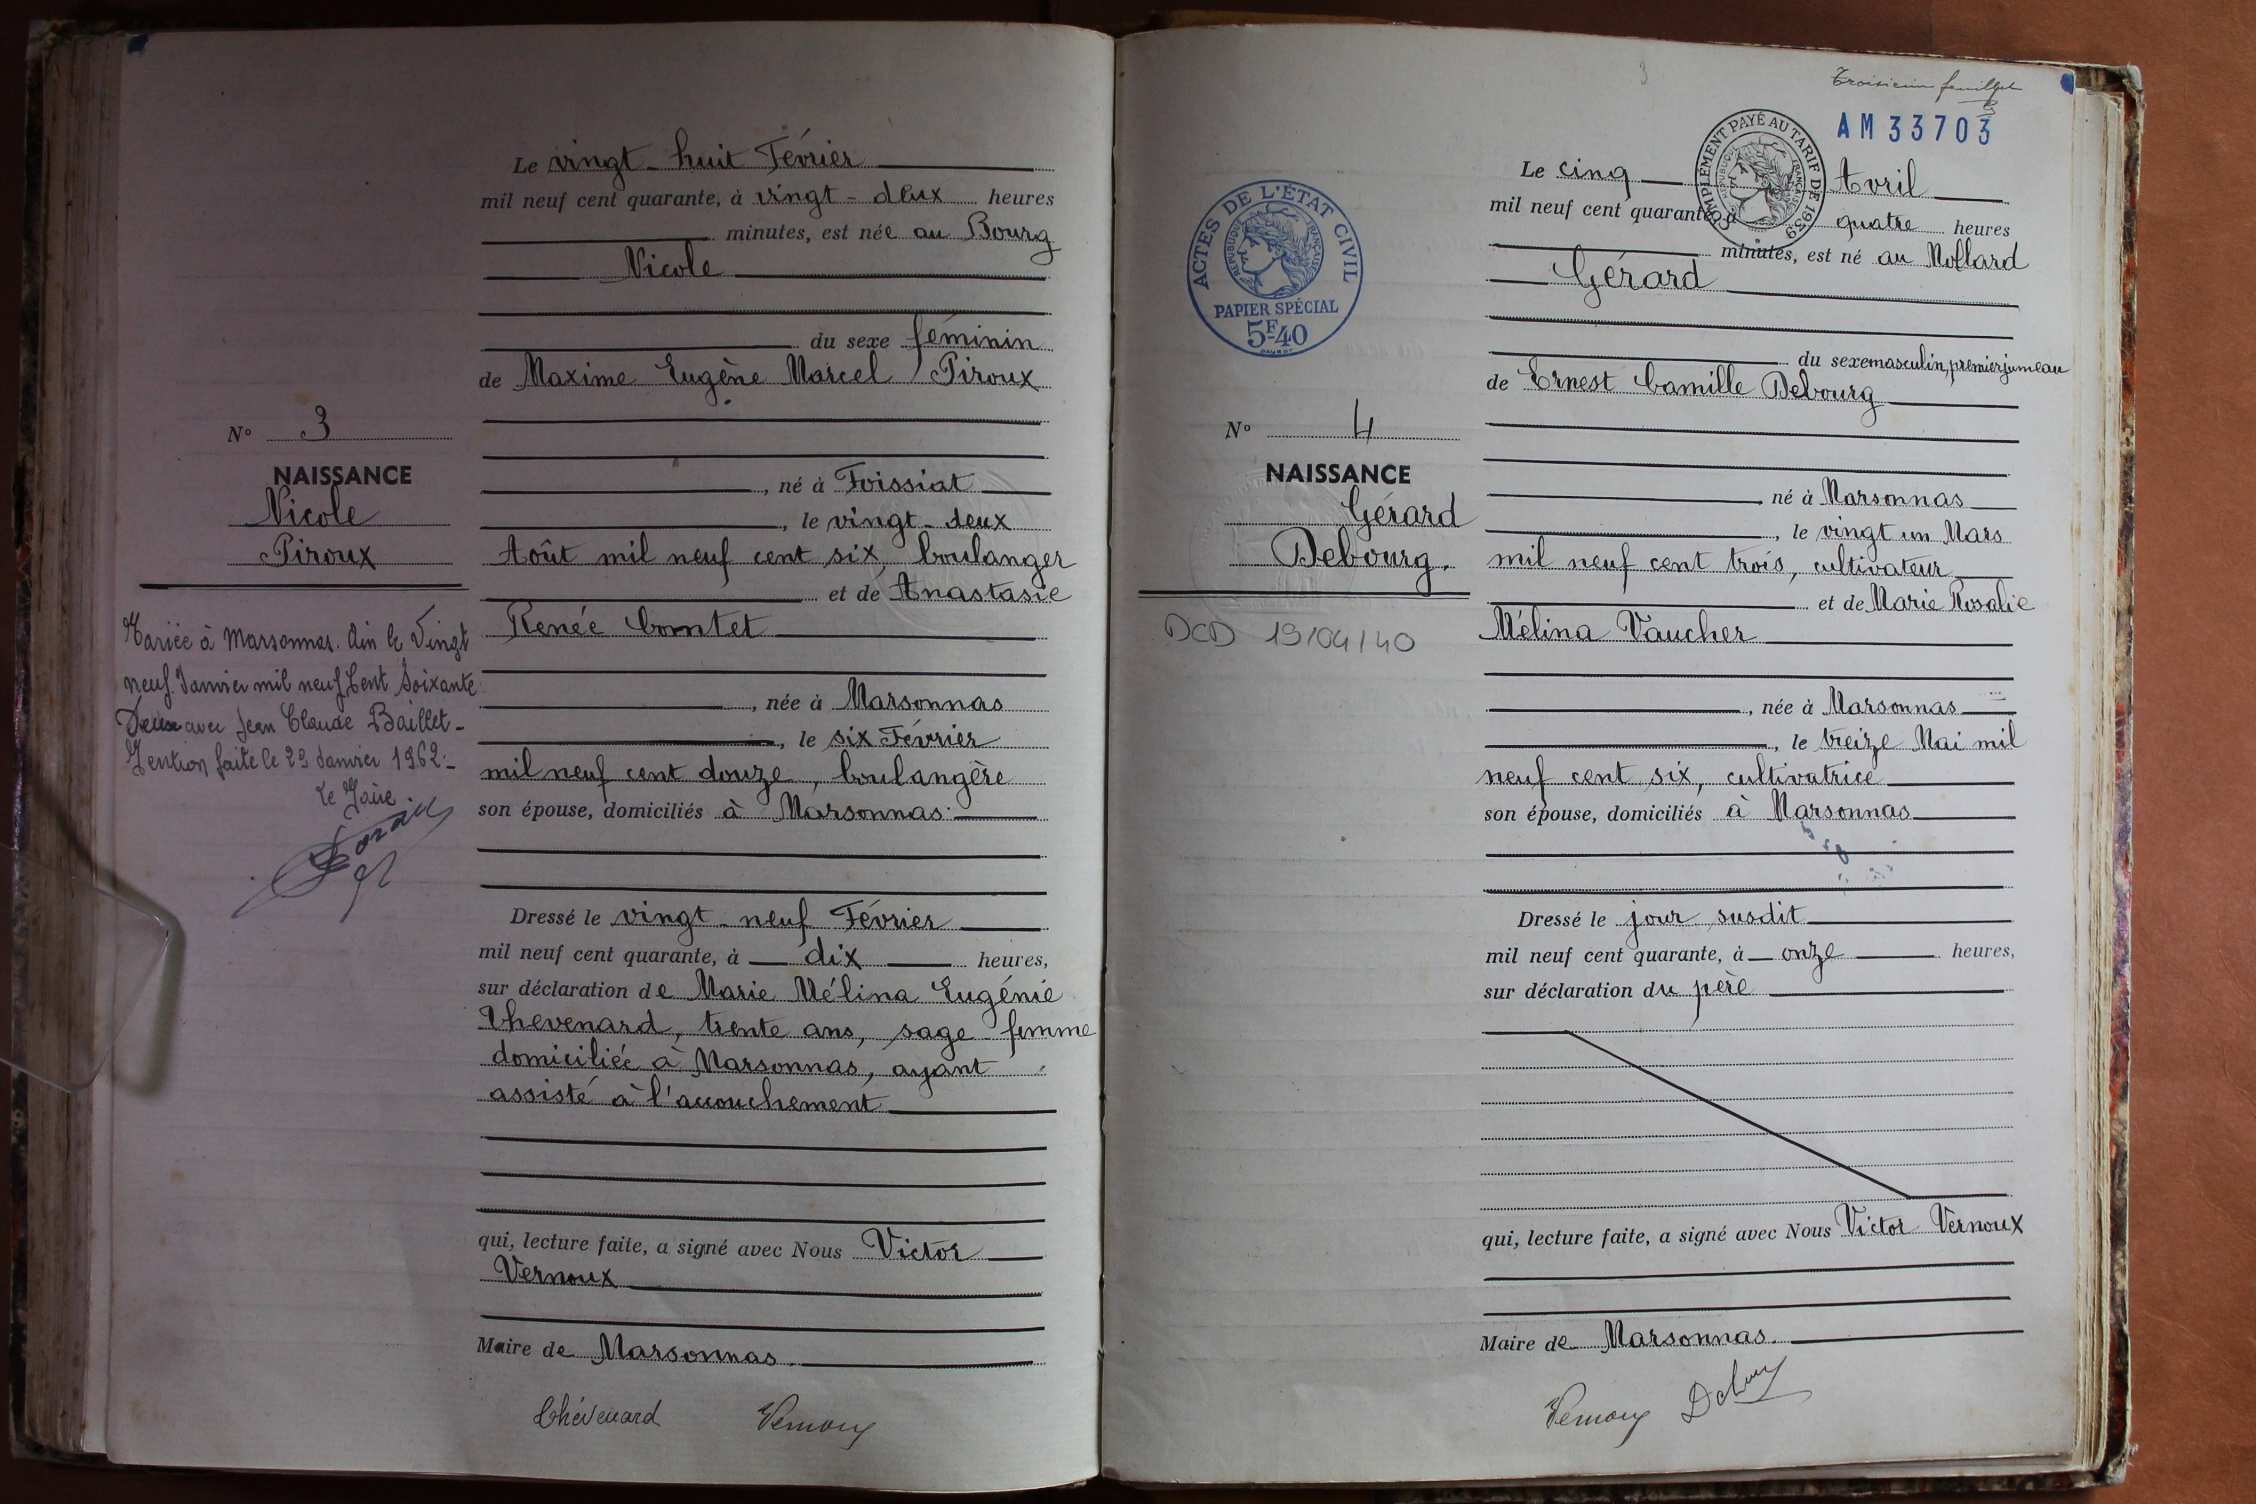 Le vingt-huit Février
mil neuf cent quarante, à vingt-deux heures
minutes, est née au Bourg
Nicole
du sexe féminin
de Maxime Eugène Marcel Piroux
N° 3
NAISSANCE
Nicole
Piroux
, né à Foissiat
, le vingt-deux
Août mil neuf cent six, boulanger
et de Anastasie
Renée Comtet
, née à Marsonnas
, le six Février
mil neuf cent douze, boulangère
son épouse, domiciliés à Marsonnas.
Mariée à Marsonnas. Ain le Vingt
neuf Janvier mil neuf Cent Soixante
Deux avec Jean Claude Baillet-
Mention faite le 29 Janvier 1962:-
Le Maire.
Dressé le vingt-neuf Février
mil neuf cent quarante, à dix heures,
sur déclaration de Marie Mélina Eugénie
Thevenard, trente ans, sage-femme
domiciliée à Marsonnas, ayant
assisté à l'accouchement
qui, lecture faite, a signé avec Nous Victor
Vernoux
Maire de Marsonnas.
Thévenard Vernoux
3
Troisième feuillet
AM 33703
COMPLÉMENT PAYÉ AU TARIF DE 1939
RÉPUBLIQUE FRANÇAISE
ACTES DE L'ÉTAT CIVIL
RÉPUBLIQUE FRANÇAISE
PAPIER SPÉCIAL
5F40
Le cinq Avril
mil neuf cent quarante, à quatre heures
minutes, est né au Mollard
Gérard
du sexe masculin, premier jumeau
de Ernest Camille Debourg
N° 4
NAISSANCE
Gérard
Debourg.
DCD 19/04/40
né à Marsonnas
, le vingt un Mars
mil neuf cent trois, cultivateur
et de Marie Rosalie
Mélina Vaucher
, née à Marsonnas
, le treize Mai mil
neuf cent six, cultivatrice
son épouse, domiciliés à Marsonnas
Dressé le jour susdit
mil neuf cent quarante, à onze heures,
sur déclaration du père
qui, lecture faite, a signé avec Nous Victor Vernoux
Maire de Marsonnas.
Vernoux